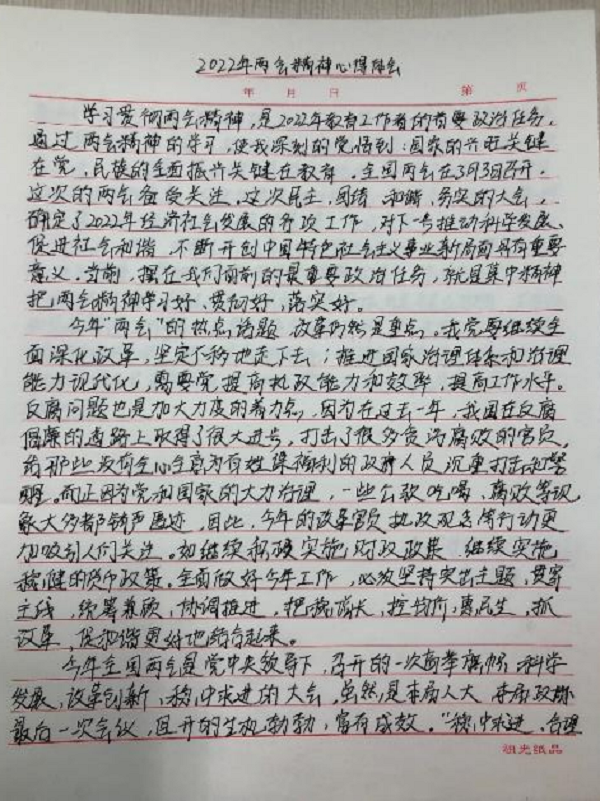 2022年两会精神心得体会
年 月 日 第 页
学习贯彻两会精神，是2022年教育工作者的首要政治任务。
通过两会精神的学习，使我深刻的觉悟到：国家的兴旺关键
在党，民族的全面振兴关键在教育。全国两会在3月3日召开。
这次的两会备受关注，这次民主，团结 和谐，务实的大会，
确定了2022年经济社会发展的各项工作，对下一步推动科学发展、
促进社会和谐，不断开创中国特色社会主义事业新局面具有重要
意义。当前，摆在我们面前的最重要政治任务，就是集中精神
把两会精神学习好、贯彻好，落实好。
今年“两会”的热点话题 改革仍然是重点。我党要继续全
面深化改革，坚定不移地走下去；推进国家治理体系和治理
能力现代化，需要党提高执政能力和效率，提高工作水平。
反腐问题也是加大力度的着力点，因为在过去一年，我国在反腐
倡廉的道路上取得了很大进步，打击了很多贪污腐败的官员，
给那些没有全心全意为百姓谋福利的政府人员沉重打击和警
醒。而正因为党和国家的大力治理，一些公款吃喝、腐败等现
象大多都销声匿迹，因此，今年的改革官员执政观念等行动更
加吸引人们关注。如继续积极实施财政政策 继续实施
稳健的货币政策，全面做好今年工作，必须坚持突出主题，贯穿
主线，统筹兼顾，协调推进，把稳增长，控物价，惠民生，抓
改革，促和谐更好地结合起来。
今年全国两会是党中央领导下，召开的一次高举旗帜 科学
发展，改革创新，稳中求进的大会，虽然是本届人大 本届政协
最后一次会议，但开的生机勃勃，富有成效。“稳中求进、合理
祖光纸品